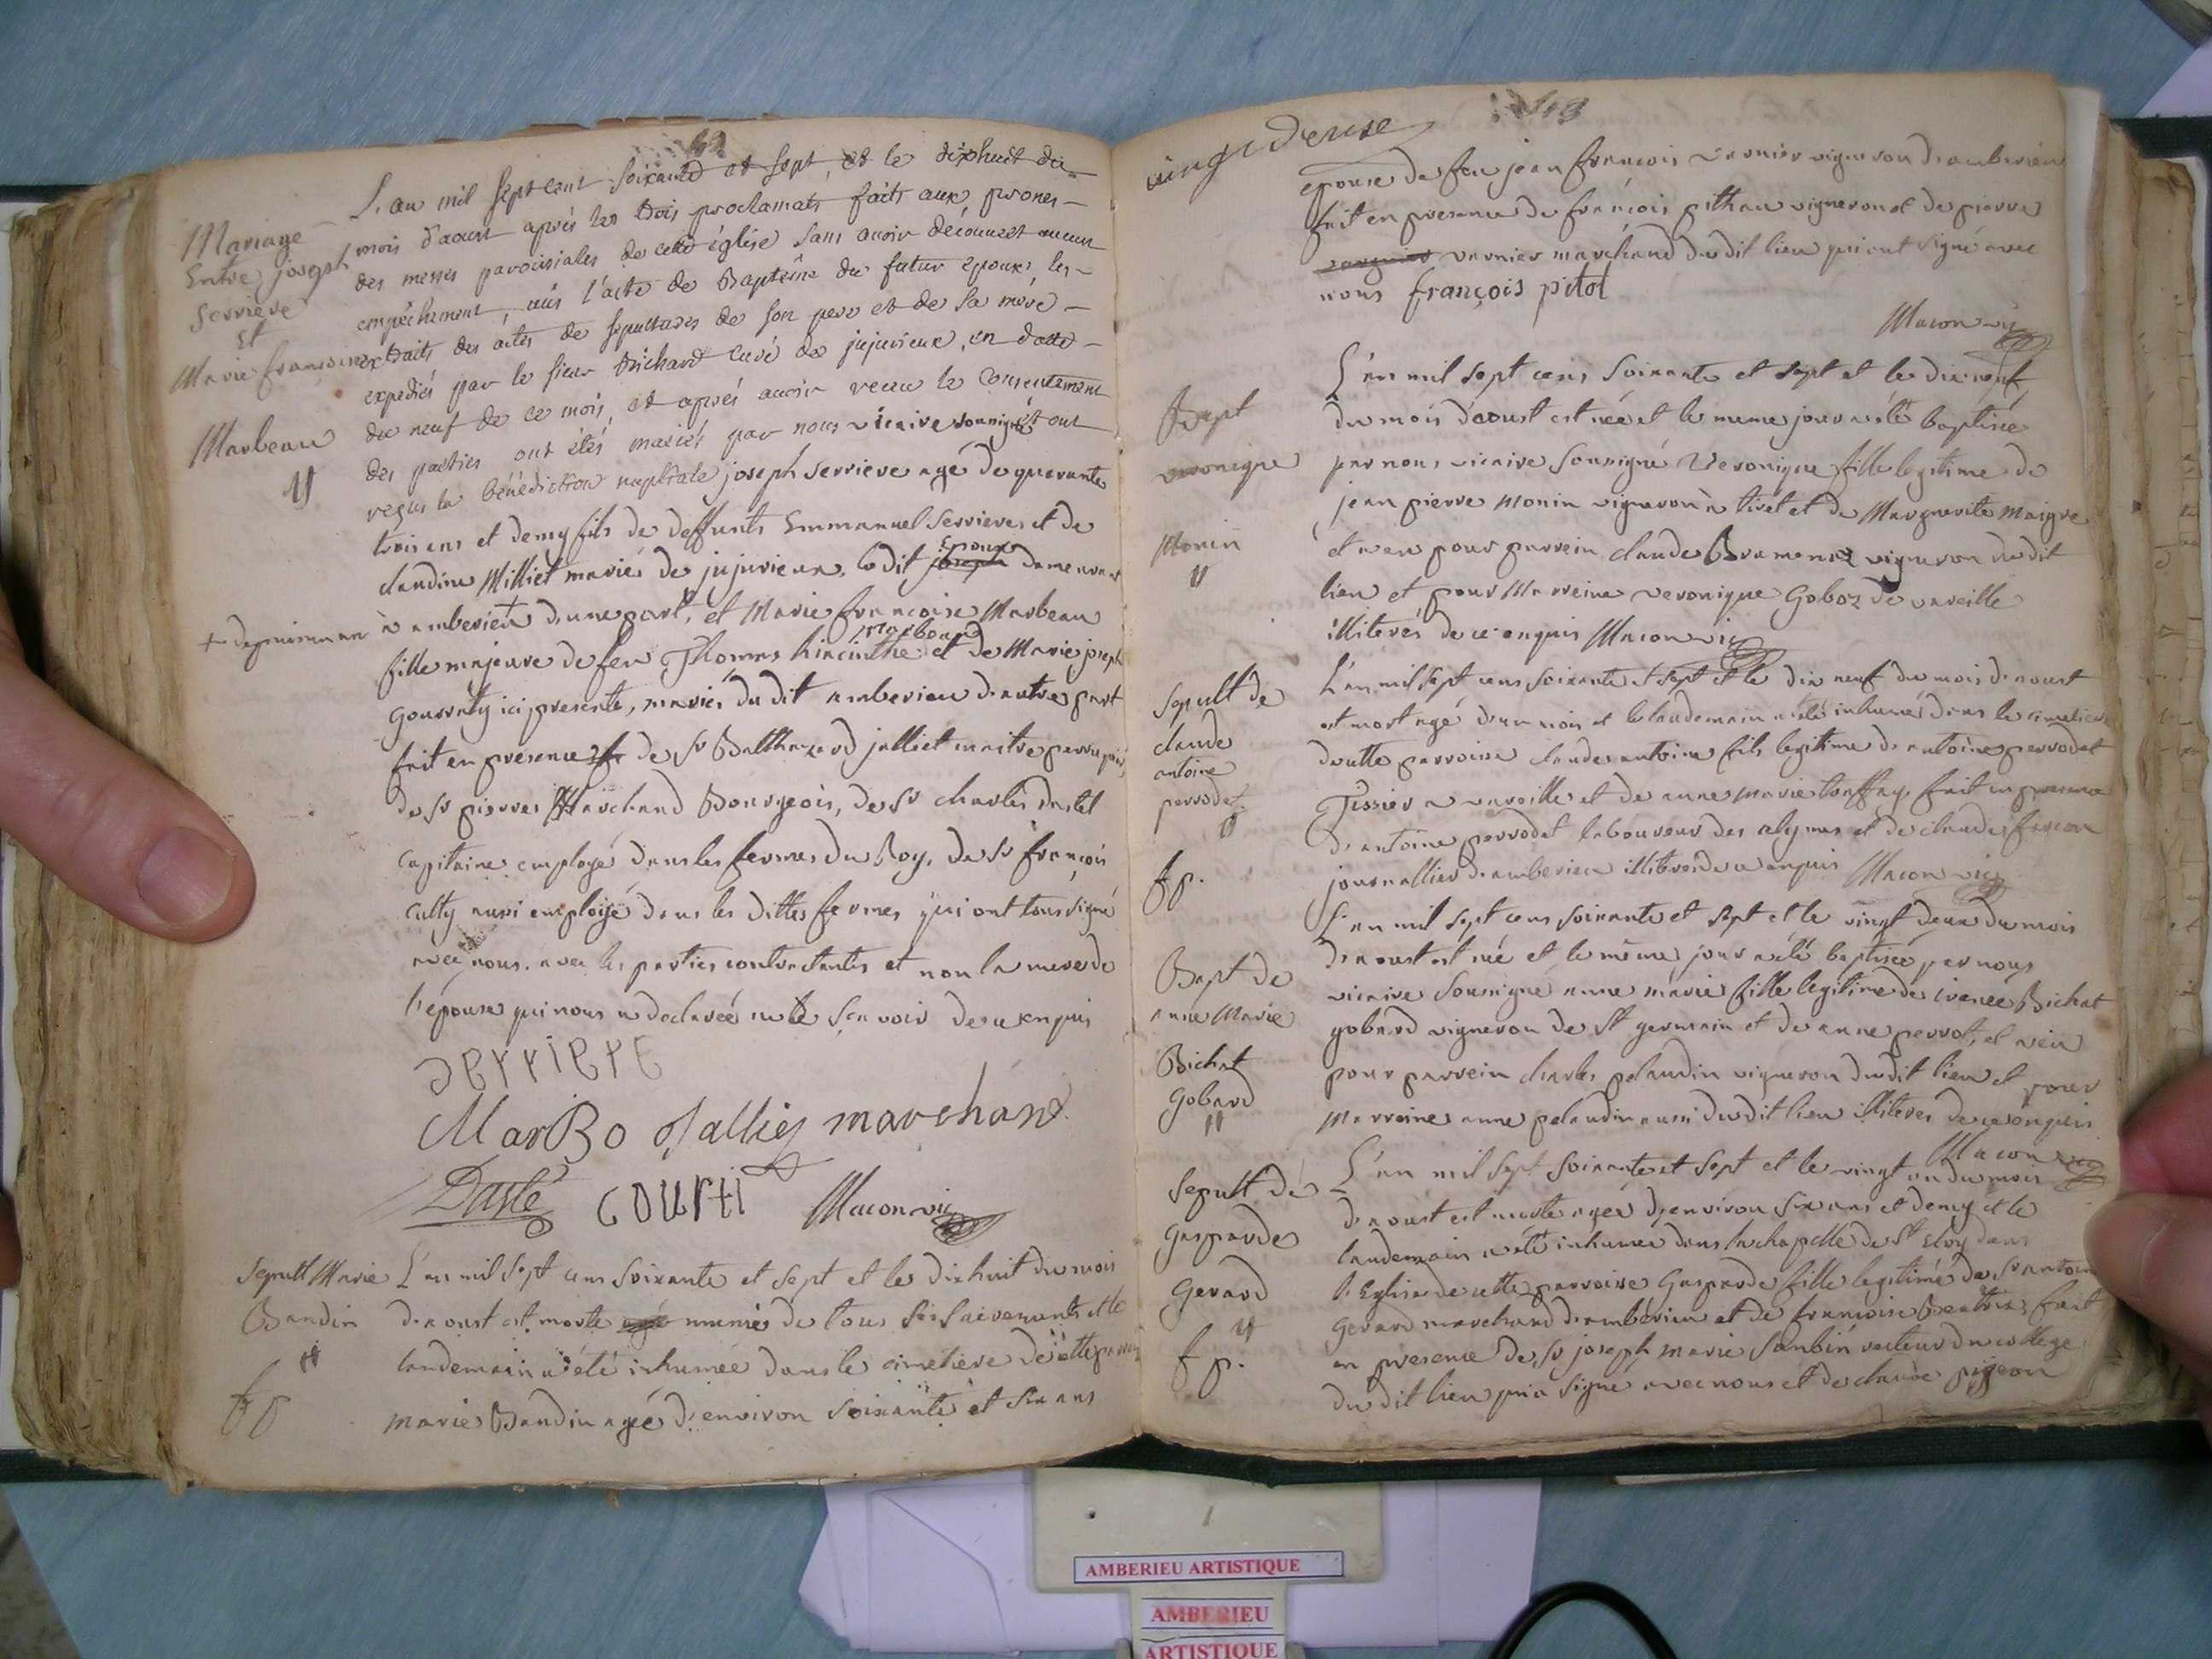 Mariage
Entre joseph
Serrieve
et
Marie francoise
Marbeau
L'an mil sept cent soixante et sept, et le dixhuit du
mois d'aoust après les trois proclamats faits aux prones
des messes paroissiales de cette église sans avoir découvert aucun
empêchement, vûs l'acte de Baptême du futur epoux, les
extraits des actes de sepultures de son pere et de sa mère
expediés par le sieur Trichard curé de jujurieux, en datte
du neuf de ce mois, et après avoir receu le consentement
des parties ont étés mariés par nous vicaire soussigné et ont
reçus la bénédiction nuptiale joseph serrieve agé de quarante
trois ans et demy fils de deffunts Emmanuel Serrieves et de
claudine Milliet mariés de jujurieux, le dit joseph epoux demeurant
+ depuis un an
à amberieu + d'une part, et Marie francoise Marbeau
fille majeure de feu Thomas hiacinthe Marbeau et de Marie joseph
gourraty ici presente, mariés du dit amberieu d'autre part
fait en presence de Sr Balthazard jalliet maitre perruquier
de Sr pierre Marchand Bourgeois, de Sr charles dastel
capitaine employé dans les fermes du Roy, de Sr françois
culty aussi employé dans les dittes fermes qui ont tous signé
avec nous. avec les parties contractantes et non la mere de
l'épouse qui nous a declarée ne le scavoir de ce enquis
Serriere
MarBo Jalliey marchand
Dasté courti Macon vic
Sepult Marie
Baudin
fp
L'an mil sept cens soixante et sept et le dixhuit du mois
d'aoust est morte agé munie de tous ses sacremants et le
landemain a été inhumée dans le cimetière de cette paroisse
marie Baudin agée d'environ soixante et six ans
vingt deuxe
epouse de feu jean françois varnier vigneron d'amberieu
fait en presence de françois pithau vigneron et de pierre
varnier marchand du dit lieu qui ont signé avec
nous françois pitol
Macon vic
Bapt
veronique
Monin
L'an mil sept cens soixante et sept et le dix neuf
du mois d'aoust est née et le meme jour a été baptisée
par nous vicaire soussigné Veronique fille legitime de
jean pierre monin vigneron à tiret et de Marguerite maigre
et a eu pour parrein claude Bramerel vigneron du dit
lieu et pour Marreine veronique Goboz de vareille
illiterés de ce enquis Macon vic
Sepult de
claude
antoine
perrodet
fp.
L'an mil sept cens soixante et sept et le dix neuf du mois d'aoust
est mort agé d'un mois et le landemain a été inhumé dans le cimetiere
de cette parroisse claude antoine fils legitime d'antoine perrodet
Tissier a vareille et de anne marie fait en presence
d'antoine perrodet laboureur des alymes et de claude
journallier d'amberieu illiterés de ce enquis Macon vic
Bapt de
anne Marie
Bichat
Gobard
L'an mil sept cens soixante et sept et le vingt deux du mois
d'aoust est née et le même jour a été baptisée par nous
vicaire soussigné anne marie fille legitime de irenée Bichat
gobard vigneron de St germain et de anne perrot, et a eu
pour parrein charles pelaudin vigneron du dit lieu et pour
marreine anne pelaudin aussi du dit lieu illiteres de ce enquis
Macon vic
Sepult de
Gasparde
Gerard
fp.
L'an mil sept soixante et sept et le vingt un du mois
d'aoust est morte agée d'environ six ans et demy et le
landemain a été inhumée dans la chapelle de St Eloy dans
l'Eglise de cette parroisse Gasparde fille legitime de Sr antoine
Gerard marchand d'amberieu et de françoise Beatrix fait
en presence de Sr joseph marie Sambin recteur du college
du dit lieu qui a signé avec nous et de claude pigeon
AMBERIEU ARTISTIQUE
AMBERIEU
ARTISTIQUE